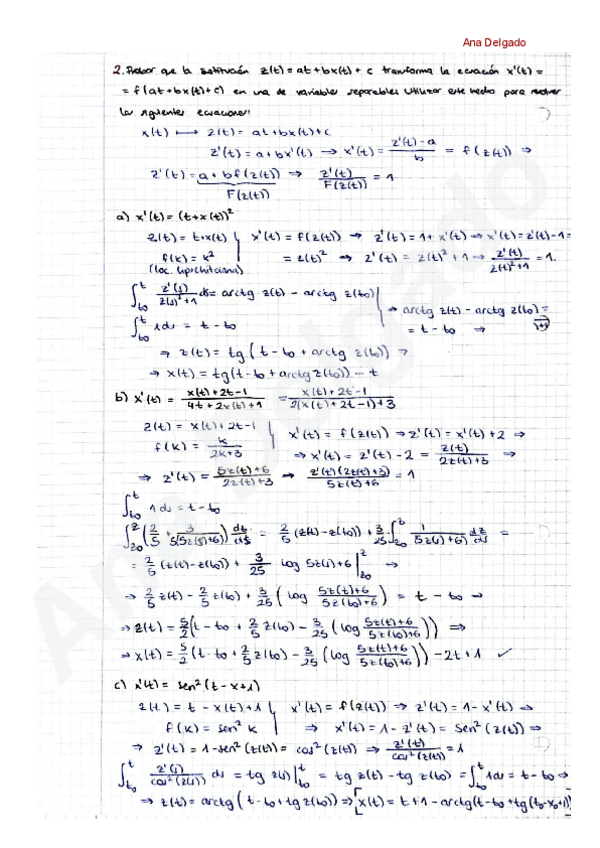 Ana Delgado
2. Probar que la sustitución z(t) = at + bx(t) + c transforma la ecuación x'(t) =
= f(at + bx(t) + c) en una de variables separables. Utilizar este medio para resolver
las siguientes ecuaciones:
x(t) ⟼ z(t) = at + bx(t) + c
z'(t) = a + bx'(t) → x'(t) = (z'(t) - a)/b = f(z(t)) ⇒
z'(t) = a + bf(z(t)) ⇒ z'(t)/F(z(t)) = 1
F(z(t))
a) x'(t) = (t + x(t))²
z(t) = t + x(t) } x'(t) = f(z(t)) → z'(t) = 1 + x'(t) ⇒ x'(t) = z'(t) - 1 =
f(k) = k² = z(t)² ⇒ z'(t) = z(t)² + 1 → z'(t)/(z(t)² + 1) = 1.
(loc. lipschitziana)
∫_{t0}^{t} z'(s)/(z(s)² + 1) ds = arctg z(t) - arctg z(t0) } → arctg z(t) - arctg z(t0) =
∫_{t0}^{t} 1 ds = t - t0 = t - t0 ⇒
⇒ z(t) = tg(t - t0 + arctg z(t0)) ⇒
→ x(t) = tg(t - t0 + arctg z(t0)) - t
b) x'(t) = (x(t) + 2t - 1)/(4t + 2x(t) + 1) = (x(t) + 2t - 1)/(2(x(t) + 2t - 1) + 3)
z(t) = x(t) + 2t - 1 } x'(t) = f(z(t)) ⇒ z'(t) = x'(t) + 2 ⇒
f(k) = k/(2k + 3) ⇒ x'(t) = z'(t) - 2 = z(t)/(2z(t) + 3) ⇒
⇒ z'(t) = (5z(t) + 6)/(2z(t) + 3) → z'(t)(2z(t) + 3)/(5z(t) + 6) = 1
∫_{t0}^{t} 1 ds = t - t0
∫_{z0}^{z} (2/5 + 3/(5(5z(s) + 6))) dz/ds = 2/5 (z(t) - z(t0)) + 3/25 ∫_{z0}^{z} 1/(5z(s) + 6) dz/ds =
= 2/5 (z(t) - z(t0)) + 3/25 log 5z(s) + 6 |_{z0}^{z} →
→ 2/5 z(t) - 2/5 z(t0) + 3/25 (log (5z(t) + 6)/(5z(t0) + 6)) = t - t0 →
→ z(t) = 5/2 (t - t0 + 2/5 z(t0) - 3/25 (log (5z(t) + 6)/(5z(t0) + 6))) ⇒
→ x(t) = 5/2 (t - t0 + 2/5 z(t0) - 3/25 (log (5z(t) + 6)/(5z(t0) + 6))) - 2t + 1 ✓
c) x'(t) = sen²(t - x + 1)
z(t) = t - x(t) + 1 } x'(t) = f(z(t)) ⇒ z'(t) = 1 - x'(t) ⇒
f(k) = sen² k ⇒ x'(t) = 1 - z'(t) = sen²(z(t)) ⇒
⇒ z'(t) = 1 - sen²(z(t)) = cos²(z(t)) ⇒ z'(t)/cos²(z(t)) = 1
∫_{t0}^{t} z'(s)/cos²(z(s)) ds = tg z(s) |_{t0}^{t} = tg z(t) - tg z(t0) = ∫_{t0}^{t} 1 ds = t - t0 ⇒
⇒ z(t) = arctg(t - t0 + tg z(t0)) ⇒ [x(t) = t + 1 - arctg(t - t0 + tg(t0 - x0 + 1))